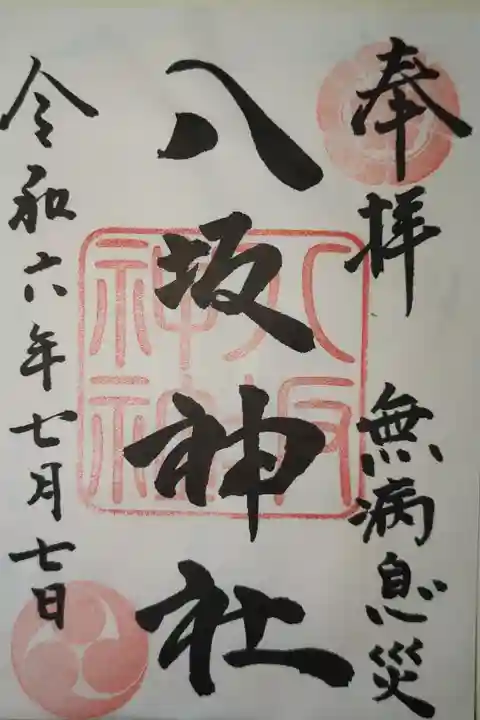 奉拝 無病息災
八坂神社
八坂神社
令和六年七月七日